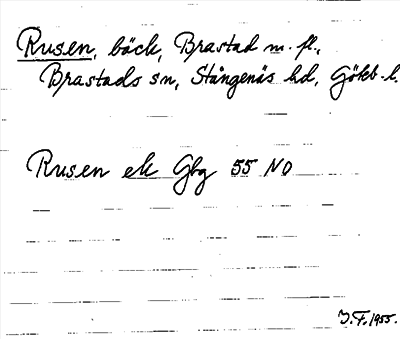 Rusen, bäck, Brastad m. fl.,
Brastads sn, Stångenäs hd, Götb. l.
Rusen ek Gbg 55 NO
J.F. 1955.